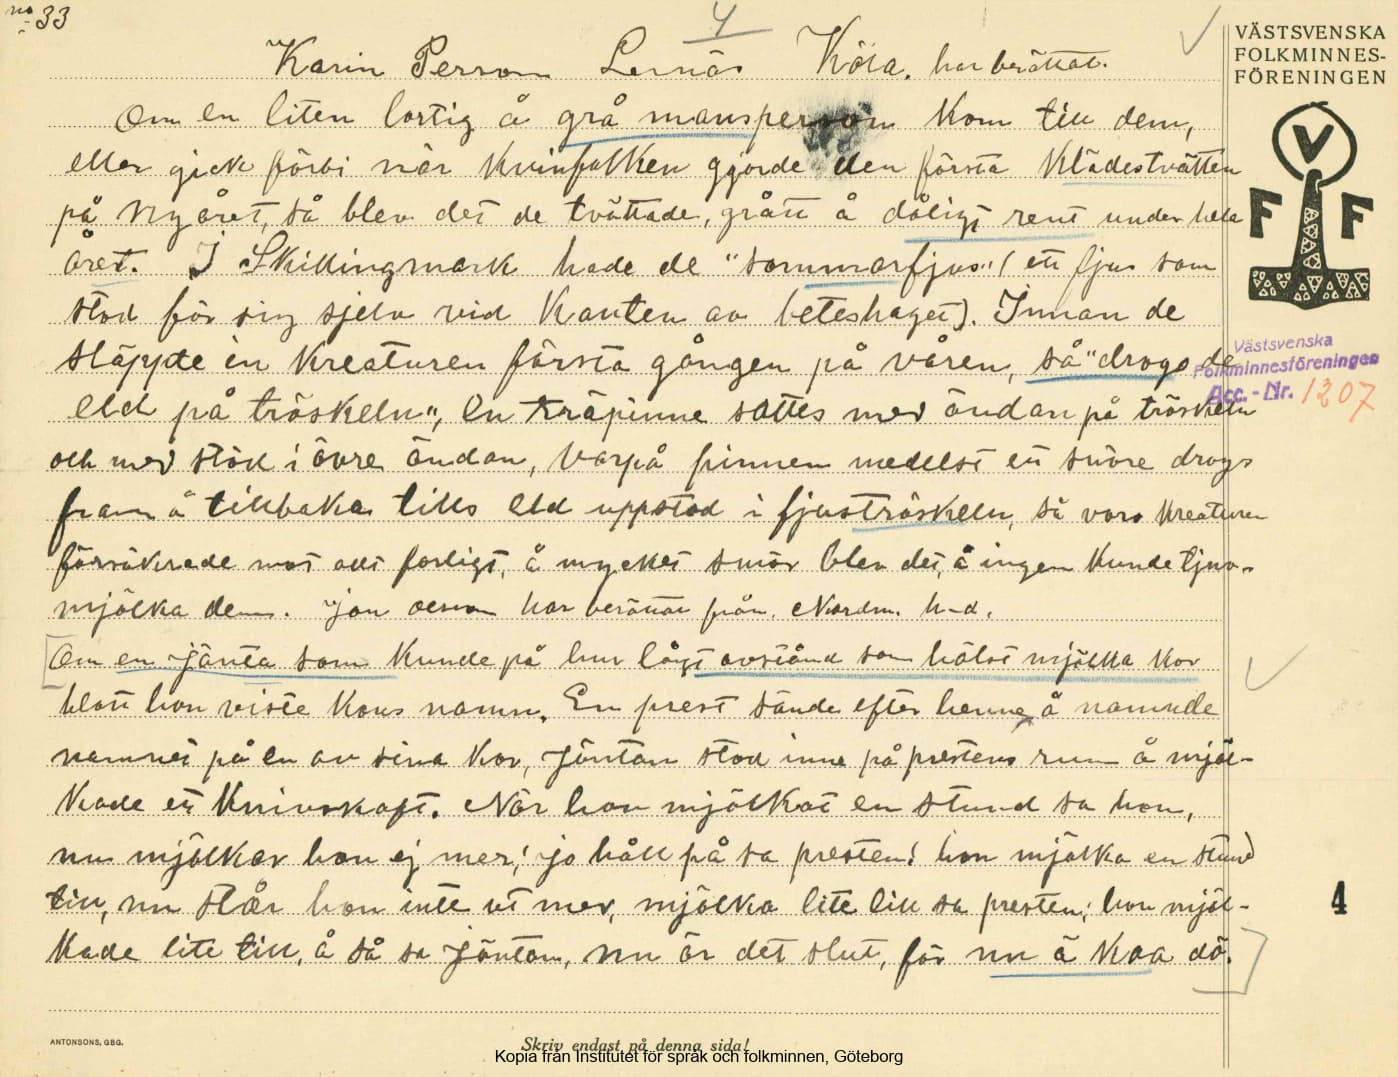 no 33
4
VÄSTSVENSKA
FOLKMINNES-
FÖRENINGEN
Karin Person Lernäs Köla. har berättat.
Om en liten lortig å grå mansperson kom till dem,
eller gick förbi när kvinfolken gjorde den första klädestvätten
på nyåret, så blev det de tvättade, grått å dåligt rent under hela
året. I Skillingmark hade de "sommarfjus" (ett fjus som
stod för sig sjelv vid kanten av beteshaget). Innan de
släppte in kreaturen första gången på våren, så "drogo de
eld på tröskeln", en träpinne sattes med ändan på tröskeln
och med stöd i övre ändan, varpå pinnen medelst ett snöre drogs
fram å tillbaka tills eld uppstod i fjuströskeln, så voro kreaturen
försäkrade mot allt farligt, å mycket smör blev det, å ingen kunde tjuv-
mjölka dem. Jon har berättat från. Nordm. h-d.
Om en jänta som kunde på hur långt avstånd som hälst mjölka kor
blott hon viste kons namn. En prest sände efter henne, å namnde
namnet på en av sina kor, Jäntan stod inne på prestens rum å mjöl-
kade ett knivskaft. När hon mjölkat en stund sa hon,
nu mjölkar hon ej mer; jo håll på sa presten! hon mjölka en stund
till, nu står hon inte ut mer, mjölka lite till sa presten; hon mjöl-
kade lite till, å så sa jäntan, nu är det slut, för nu ä koa dö.
V
F F
Västsvenska
Folkminnesföreningen
Acc.-Nr. 1307
4
ANTONSONS, GBG.
Skriv endast på denna sida!
Kopia från Institutet för språk och folkminnen, Göteborg